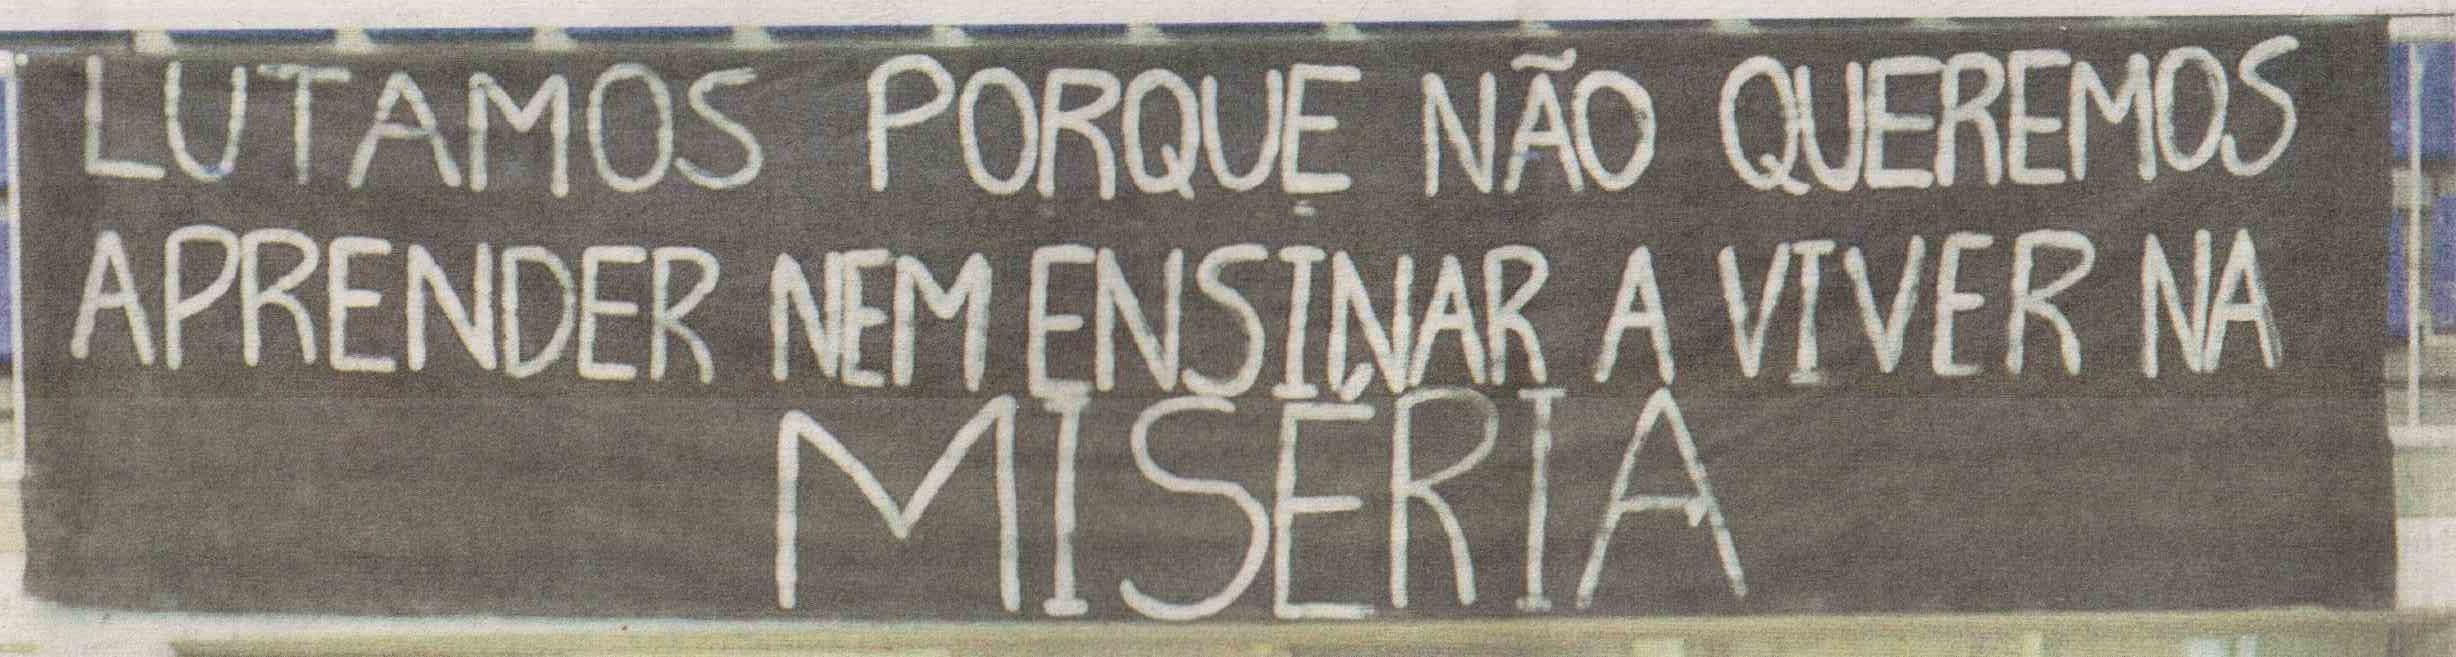 LUTAMOS PORQUE NÃO QUEREMOS
APRENDER NEM ENSINAR A VIVER NA
MISÉRIA